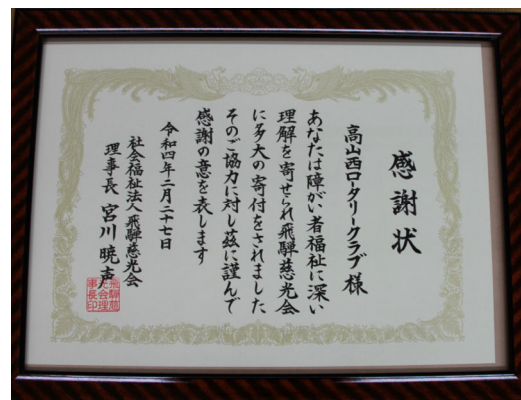 感謝状
高山西ロータリークラブ様
あなたは障がい者福祉に深い
理解を寄せられ飛騨慈光会
に多大の寄付をされました
そのご協力に対し茲に謹んで
感謝の意を表します
令和四年二月二十七日
社会福祉法人飛騨慈光会
理事長 宮川暁声